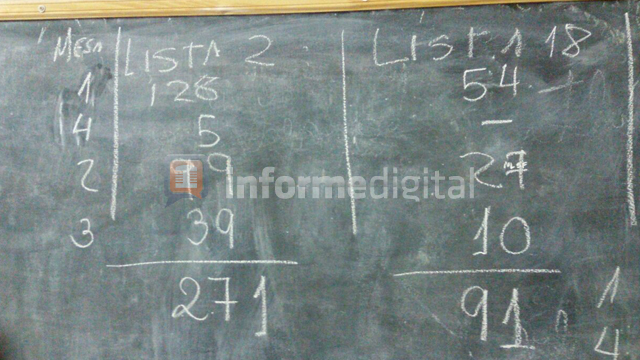 MESA LISTA 2 LISTA 18
1 128 54
4 5 –
2 99 27
informedigital
3 39 10
271 91
1
4